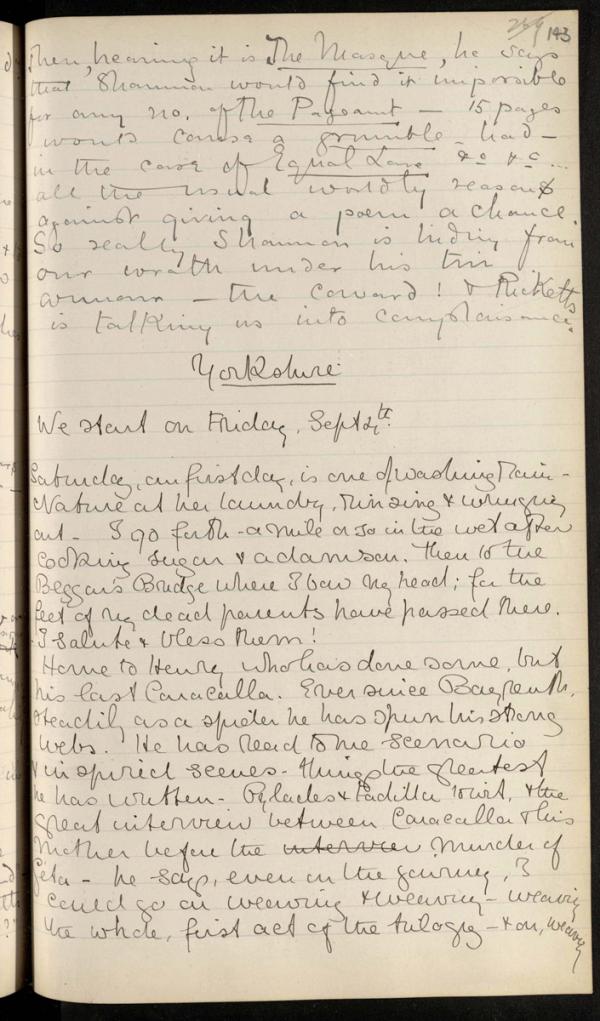 143
then, hearing it is The Masque, he says
that Shannon would find it impossible
for any no. of The Pageant — 15 pages
would cause a grumble – had –
in the case of Equal Love &c &c ...
all the usual worldly reasons
against giving a poem a chance.
So really Shannon is hiding from
our wrath under his tin
armour — the coward! & Ricketts
is talking us into complaisance.
Yorkshire
We start on Friday, Sept 4th.
Saturday, our first day, is one of washing rain –
Nature at her laundry, rinsing & wringing
out – I go forth – a mile or so in the wet after
cooking sugar & adamson. Then to the
Beggar's Bridge where I bow my head; for the
feet of my dead parents have passed there.
I salute & bless them!
Home to Henry who has done some, but
his last Caracalla. Ever since Bayreuth,
steadily as a spider he has spun his strong
webs. He has read to me scenario
& inspired scenes – things the greatest
he has written – Pylades & Padilla to wit, & the
great interview between Caracalla & his
Mother before the interview murder of
Geta – he says, even on the journey, I
could go on weaving & weaving – weaving
the whole, first act of the trilogy – & on, weaving